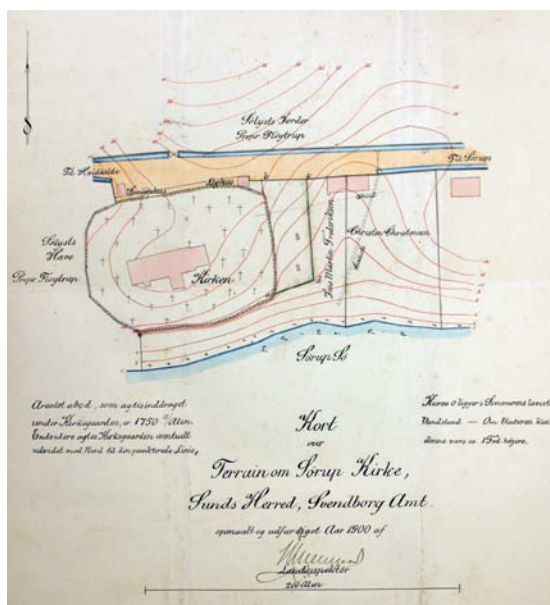 Sølysts Jorder
Propr. Fløytrup
Til Heidkilde
Til Sørup
Ligehus
Sølysts
Have
Propr. Fløytrup
Kirken
Jens Martin Frederiksen
Christen Christensen
Sørup Sø
Arealet abcd, som agtes inddraget
under Kirkegaarden, er 1750 □Alen.
Endvidere agtes Kirkegaarden eventuelt
udvidet mod Nord til den punkterede Linie,
Kurve 0 ligger i Sommerens laveste
Vandstand — Om Vinteren kan
denne være ca 1 Fod højere.
Kort
over
Terrain om Sørup Kirke,
Sunds Herred, Svendborg Amt.
opmaalt og udfærdiget Aar 1900 af
Landinspektør
200 Alen